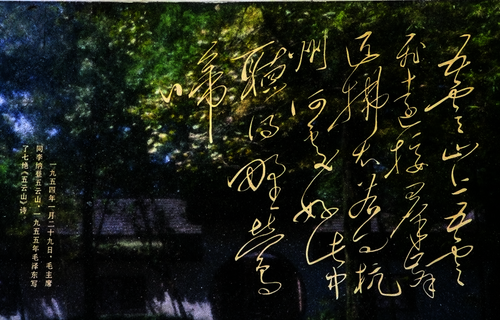 五雲山上五雲
飛遠接群峰
近拂堤若问杭
州何處好此中
聽得野鶯
啼
一九五四年一月二十九日，毛主席
同李纳登五云山，一九五五年毛泽东写
了七绝《五云山》诗